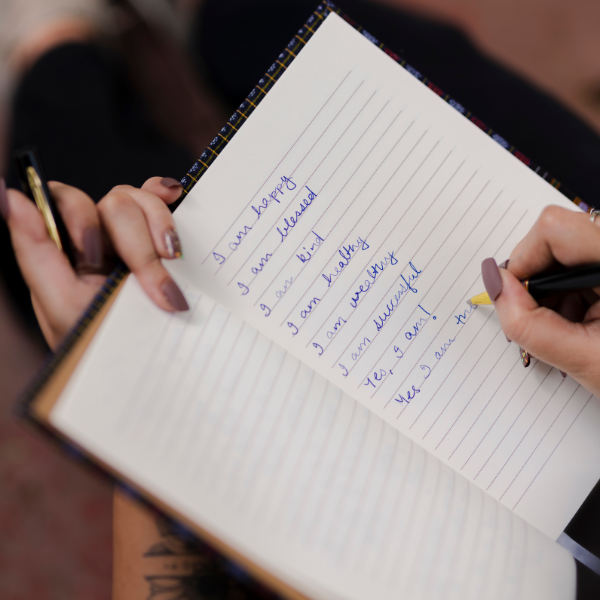 I am happy
I am blessed
I am kind
I am healthy
I am wealthy
I am sucessful
Yes, I am!
Yes I am